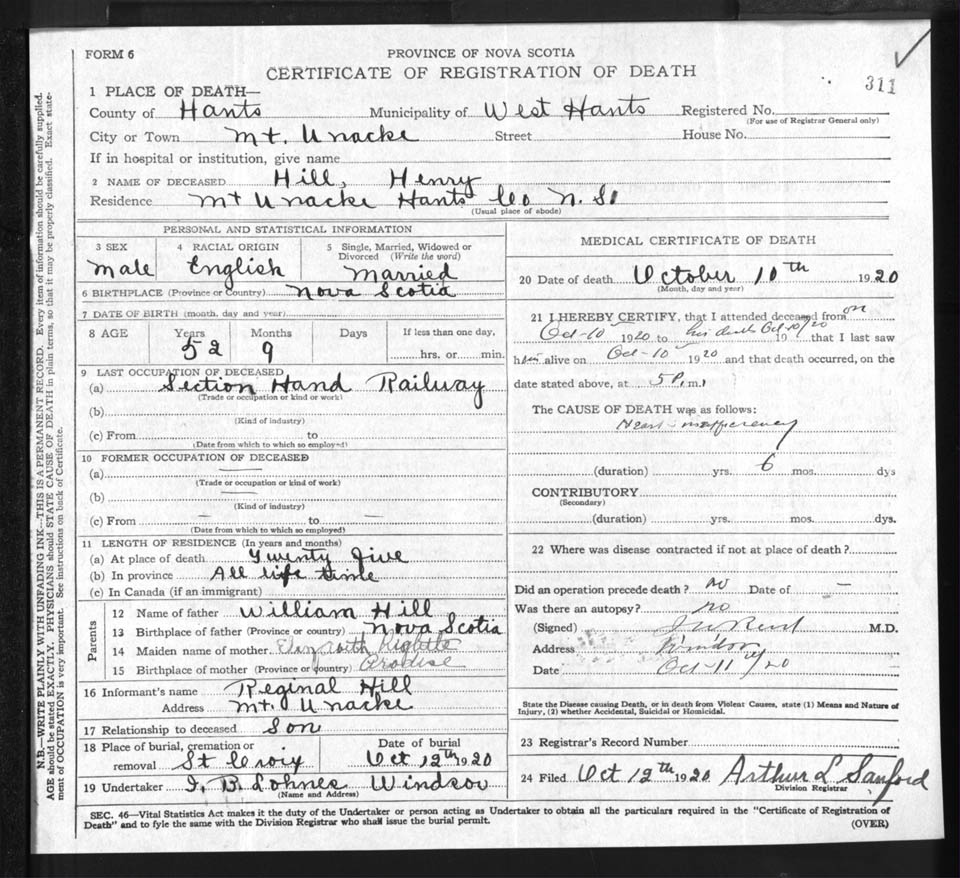 FORM 6
PROVINCE OF NOVA SCOTIA
CERTIFICATE OF REGISTRATION OF DEATH
311
1 PLACE OF DEATH—
County of Hants Municipality of West Hants Registered No.
(For use of Registrar General only)
City or Town Mt. Unacke Street House No.
If in hospital or institution, give name
2 NAME OF DECEASED Hill, Henry
Residence Mt Unacke Hants Co N. So
(Usual place of abode)
PERSONAL AND STATISTICAL INFORMATION
3 SEX 4 RACIAL ORIGIN 5 Single, Married, Widowed or Divorced (Write the word)
Male English Married
6 BIRTHPLACE (Province or Country) Nova Scotia
7 DATE OF BIRTH (month, day and year)
8 AGE Years Months Days If less than one day,
52 9 hrs. or min.
9 LAST OCCUPATION OF DECEASED
(a) Section Hand Railway
(Trade or occupation or kind or work)
(b)
(Kind of industry)
(c) From to
(Date from which to which so employed)
10 FORMER OCCUPATION OF DECEASED
(a)
(Trade or occupation or kind of work)
(b)
(Kind of industry)
(c) From — to —
(Date from which to which so employed)
11 LENGTH OF RESIDENCE (In years and months)
(a) At place of death Twenty five
(b) In province All life time
(c) In Canada (if an immigrant)
Parents
12 Name of father William Hill
13 Birthplace of father (Province or country) Nova Scotia
14 Maiden name of mother
15 Birthplace of mother (Province or country)
16 Informant's name Reginal Hill
Address Mt. Unacke
17 Relationship to deceased Son
18 Place of burial, cremation or removal St Croix Date of burial Oct 12th 1920
19 Undertaker I. B. Lohnes Windsor
(Name and Address)
MEDICAL CERTIFICATE OF DEATH
20 Date of death October 10th 1920
(Month, day and year)
21 I HEREBY CERTIFY, that I attended deceased from on
Oct-10 1920 to his death Oct-10/20 19 that I last saw
him alive on Oct-10 1920 and that death occurred, on the
date stated above, at 5 P. m.
The CAUSE OF DEATH was as follows:
Heart
(duration) yrs. 6 mos. dys
CONTRIBUTORY
(Secondary)
(duration) yrs. mos. dys.
22 Where was disease contracted if not at place of death?
Did an operation precede death? no Date of —
Was there an autopsy? no
(Signed) M.D.
Address Windsor
Date Oct-11/20
State the Disease causing Death, or in death from Violent Causes, state (1) Means and Nature of Injury, (2) whether Accidental, Suicidal or Homicidal.
23 Registrar's Record Number
24 Filed Oct 12th 1920 Arthur L Sanford
Division Registrar
SEC. 46—Vital Statistics Act makes it the duty of the Undertaker or person acting as Undertaker to obtain all the particulars required in the "Certificate of Registration of
Death" and to fyle the same with the Division Registrar who shall issue the burial permit.
(OVER)
N.B.—WRITE PLAINLY WITH UNFADING INK—THIS IS A PERMANENT RECORD. Every item of information should be carefully supplied.
AGE should be stated EXACTLY. PHYSICIANS should STATE CAUSE OF DEATH in plain terms, so that it may be properly classified. Exact statement of OCCUPATION is very important. See instructions on back of Certificate.